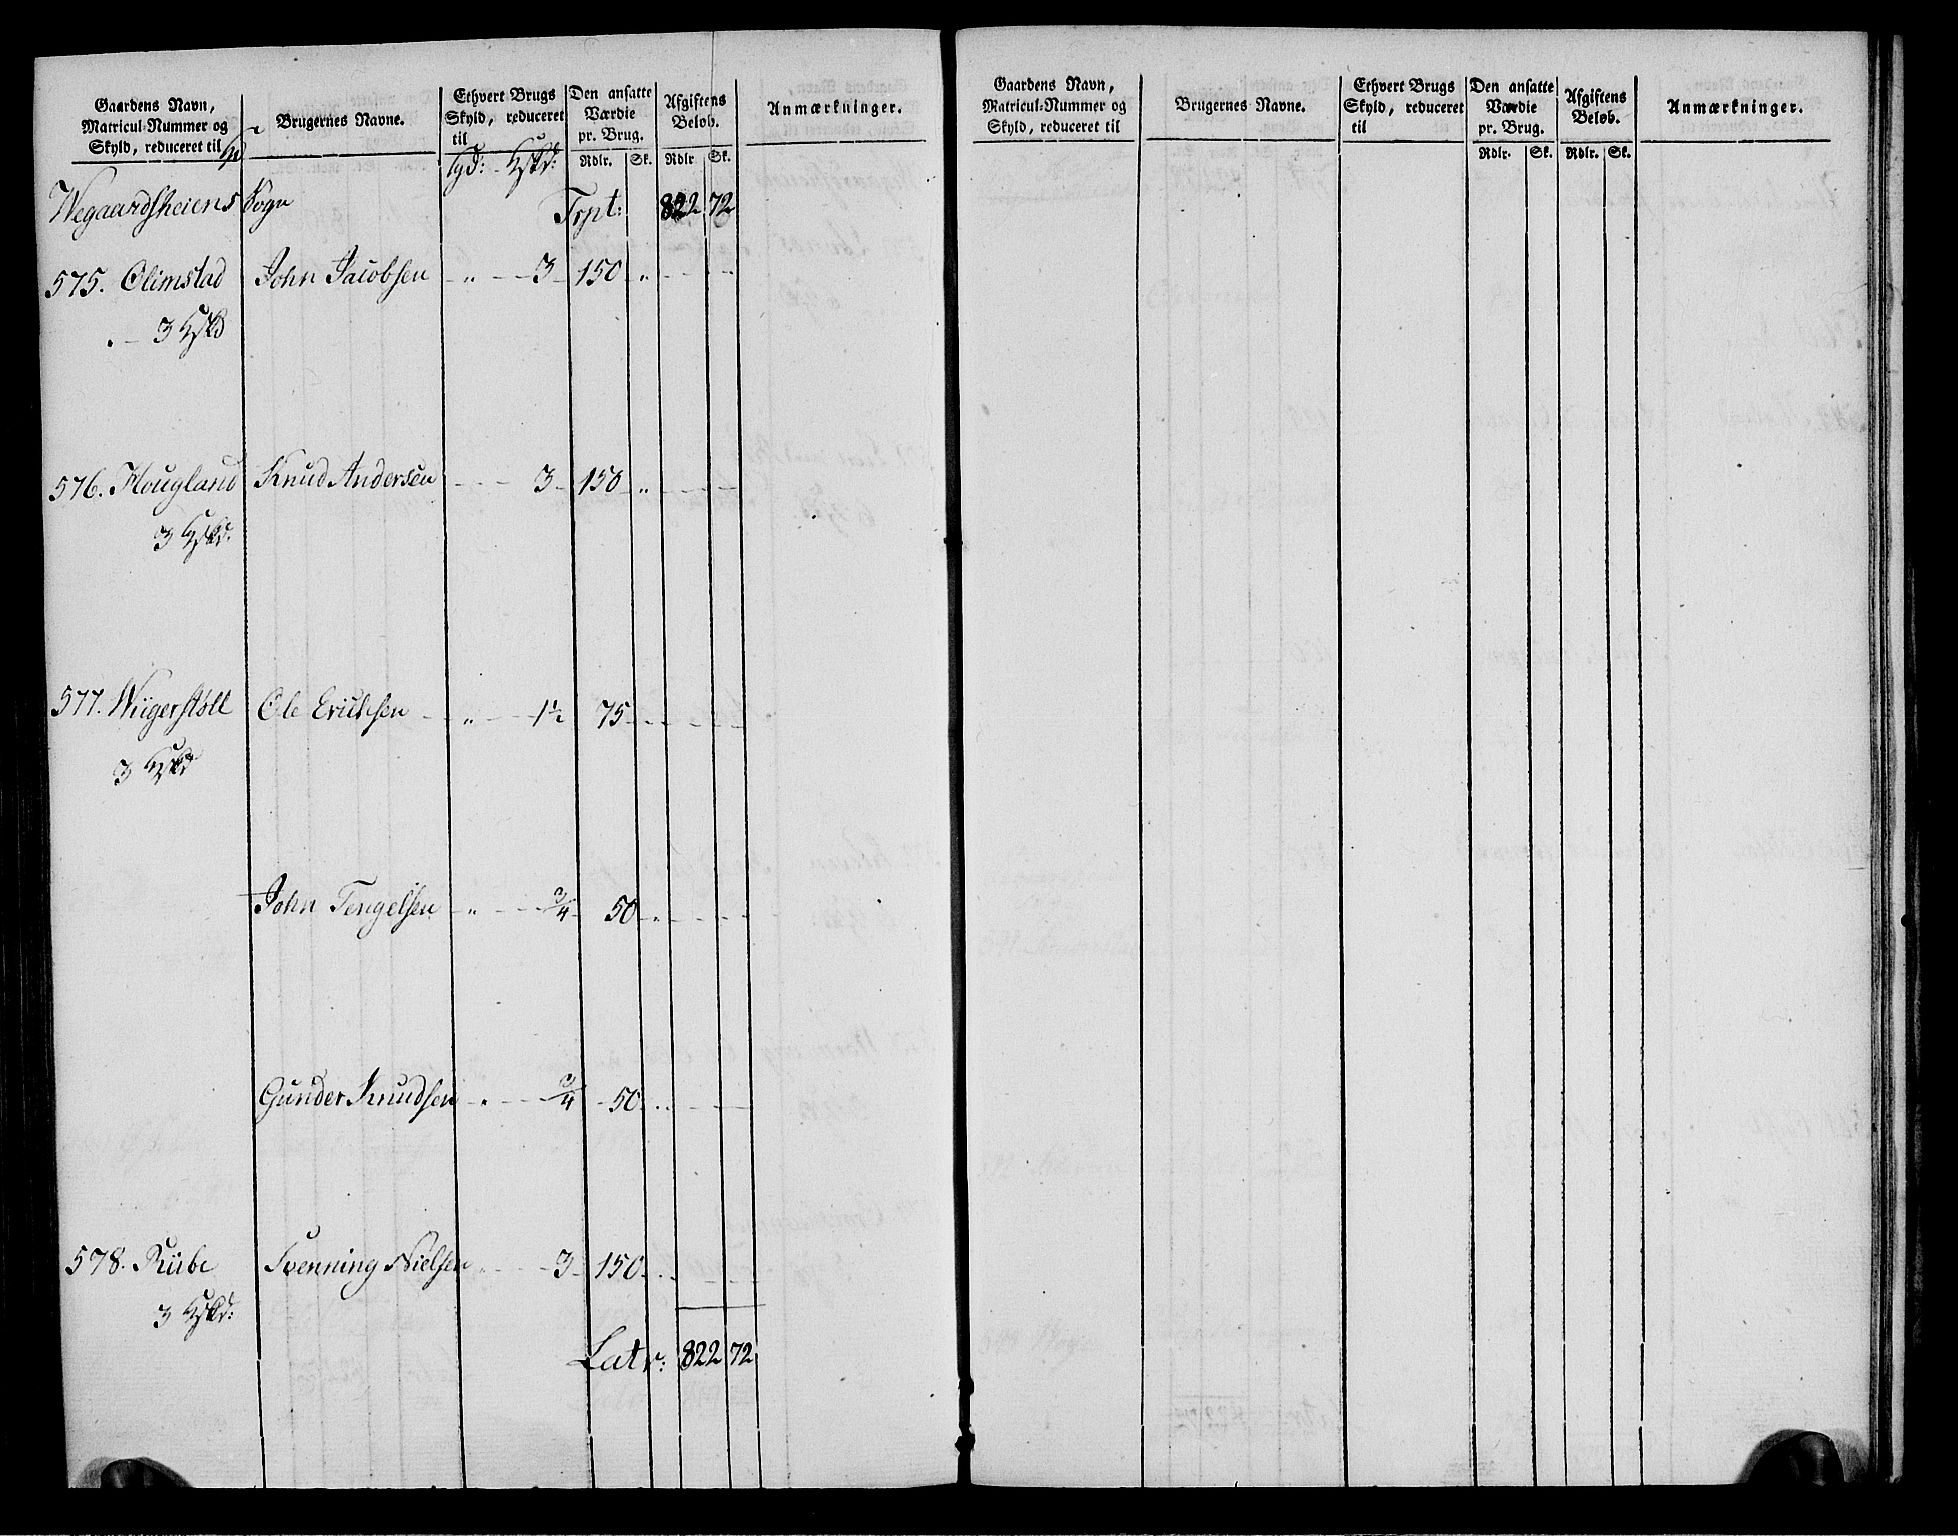 Gaardens Navn, Matricul-Nummer og Skyld, reduceret til
Brugernes Navne.
Ethvert Brugs Skyld, reduceret til
Den ansatte Værdie pr. Brug.
Rdlr. Sk.
Afgiftens Beløb.
Rdlr. Sk.
Anmærkninger.
Wegaardsheiens Sogn Trpt: 822 72
575. Olimstad John Jacobsen „ 3 150 „
3
576. Hougland Knud Andersen 3 150 „
3
577. Wiigerstøll Ole Erichsen „ 1½ 75
3
John Tengelsen „ ¾ 50 „
Gunder Knudsen „ ¾ 50
578. Riibe Svenning Nielsen „ 3 150
3
Latr: 822 72
Gaardens Navn, Matricul-Nummer og Skyld, reduceret til
Brugernes Navne.
Ethvert Brugs Skyld, reduceret til
Den ansatte Værdie pr. Brug.
Rdlr. Sk.
Afgiftens Beløb.
Rdlr. Sk.
Anmærkninger.